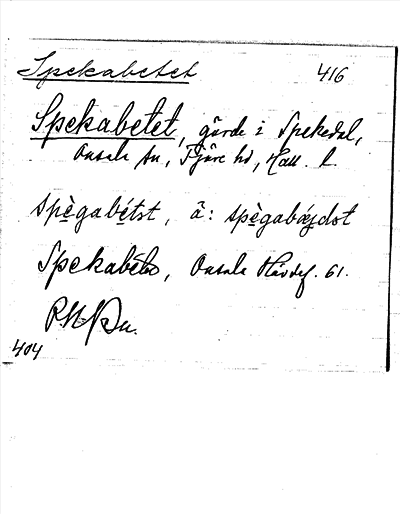 Spekabetet 416
Spekabetet, gärde i Spekedal,
Onsala sn, Fjäre hd, Hall. l.
spègabétət, ä: spègabáɡdət
Spekabébo, Onsala Hävdef. 61.
404